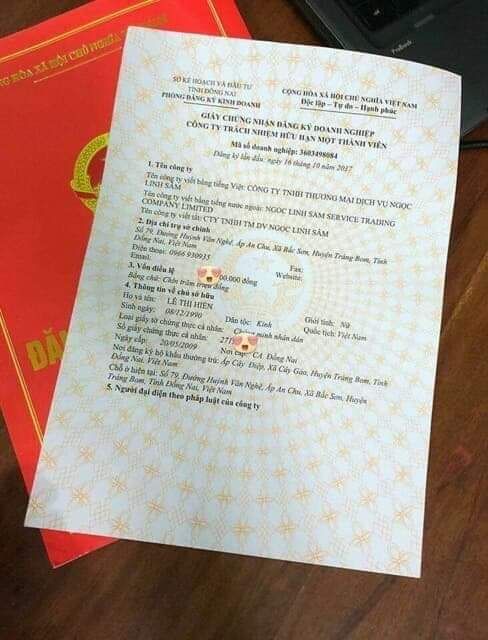 HÒA XÃ HỘI CHỦ NGHĨA
ĐĂN
ProBook
SỞ KẾ HOẠCH VÀ ĐẦU TƯ
TỈNH ĐỒNG NAI
PHÒNG ĐĂNG KÝ KINH DOANH
CỘNG HÒA XÃ HỘI CHỦ NGHĨA VIỆT NAM
Độc lập - Tự do - Hạnh phúc
GIẤY CHỨNG NHẬN ĐĂNG KÝ DOANH NGHIỆP
CÔNG TY TRÁCH NHIỆM HỮU HẠN MỘT THÀNH VIÊN
Mã số doanh nghiệp: 3603498084
Đăng ký lần đầu, ngày 16 tháng 10 năm 2017
1. Tên công ty
Tên công ty viết bằng tiếng Việt: CÔNG TY TNHH THƯƠNG MẠI DỊCH VỤ NGỌC
LINH SÂM
Tên công ty viết bằng tiếng nước ngoài: NGOC LINH SAM SERVICE TRADING
COMPANY LIMITED
Tên công ty viết tắt: CTY TNHH TM DV NGỌC LINH SÂM
2. Địa chỉ trụ sở chính
Số 79, Đường Huỳnh Văn Nghệ, Ấp An Chu, Xã Bắc Sơn, Huyện Trảng Bom, Tỉnh
Đồng Nai, Việt Nam
Điện thoại: 0966 930935 Fax:
Email: Website:
3. Vốn điều lệ 00.000 đồng
Bằng chữ: Chín trăm triệu đồng
4. Thông tin về chủ sở hữu
Họ và tên: LÊ THỊ HIỀN Giới tính: Nữ
Sinh ngày: 08/12/1990 Dân tộc: Kinh Quốc tịch: Việt Nam
Loại giấy tờ chứng thực cá nhân: minh nhân dân
Số giấy chứng thực cá nhân: 271
Ngày cấp: 20/05/2009 Nơi cấp: CA Đồng Nai
Nơi đăng ký hộ khẩu thường trú: Ấp Cây Điệp, Xã Cây Gáo, Huyện Trảng Bom, Tỉnh
Đồng Nai, Việt Nam
Chỗ ở hiện tại: Số 79, Đường Huỳnh Văn Nghệ, Ấp An Chu, Xã Bắc Sơn, Huyện
Trảng Bom, Tỉnh Đồng Nai, Việt Nam
5. Người đại diện theo pháp luật của công ty